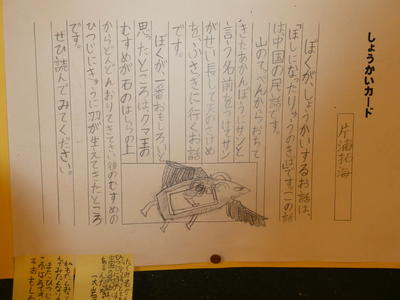 しょうかいカード
片浦拓海
ぼくが、しょうかいするお話は、
「ほしになったりゅうのきば」です。この話
は中国の民話です。
山のてっぺんからおちて
きたあかんぼうにサンと
言う名前をつけてサン
がせい長して天のさけめ
を、ふさぎに行くお話
です。
ぼくが一番おもしろいと
思ったところはクマ王の
むすめが石のはしらの上
からどんどんおりてきて
ひつじにきゅうに羽が生えてきたところ
です。
ぜひ読んでみてください。